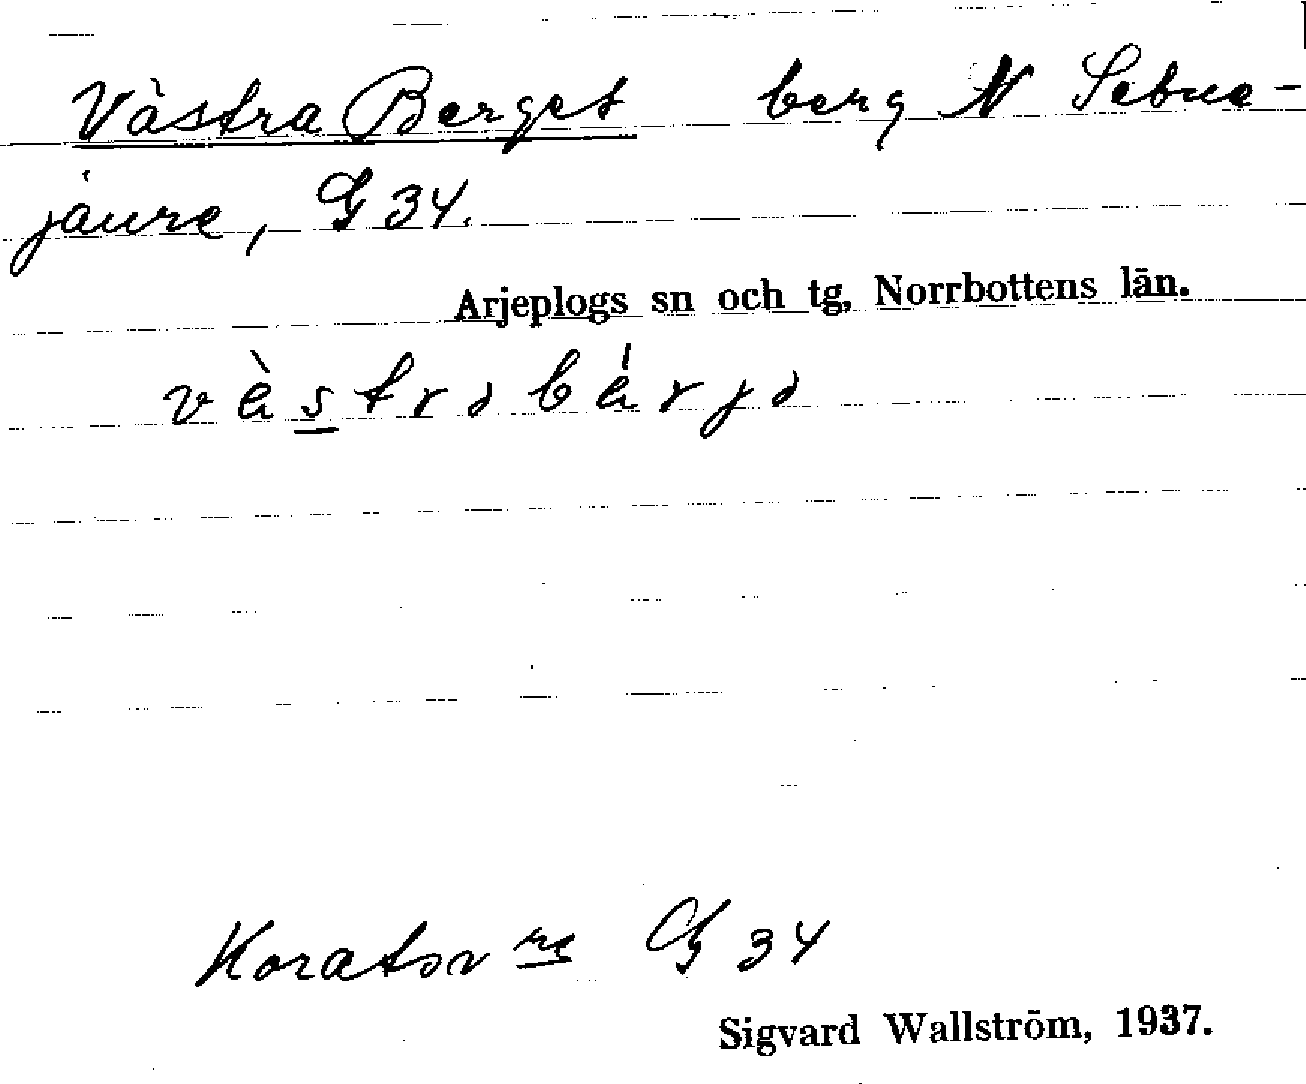 Västra Berget berg N Sebue-
jaure, G 34.
Arjeplogs sn och tg, Norrbottens län.
v ä̀ s t r ə b ä́ r j ə
G 34
Sigvard Wallström, 1937.